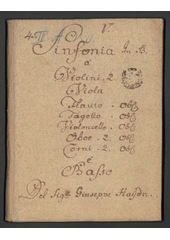 Sinfonia In. B.
a
Violini. 2.
Viola
Flauto. Obl:
Fagotto. Obl:
Violoncello. Obl:
Oboe. 2. Obl:
Corni. 2. Obl:
e
Basso
Del Sigre Giuseppe Haydn.